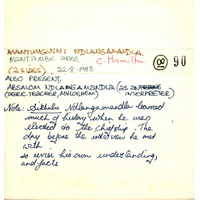 MANTUNGWINI NDLANGAMANDLA
MANTAMBE AREA
C. Hamilton
(2 SIDES), 22-8-1983
90
ALSO PRESENT,
ABSALOM NDLANGAMANDLA (AS
(AGRIC. TEACHER, MAHLOSHENI) INTERPRETER)
Note: Sikhulu Ndlangamandla learned
much of history when he was
elected to the chiefship. The
day before the interview he met
with
to revise his own understanding,
and facts